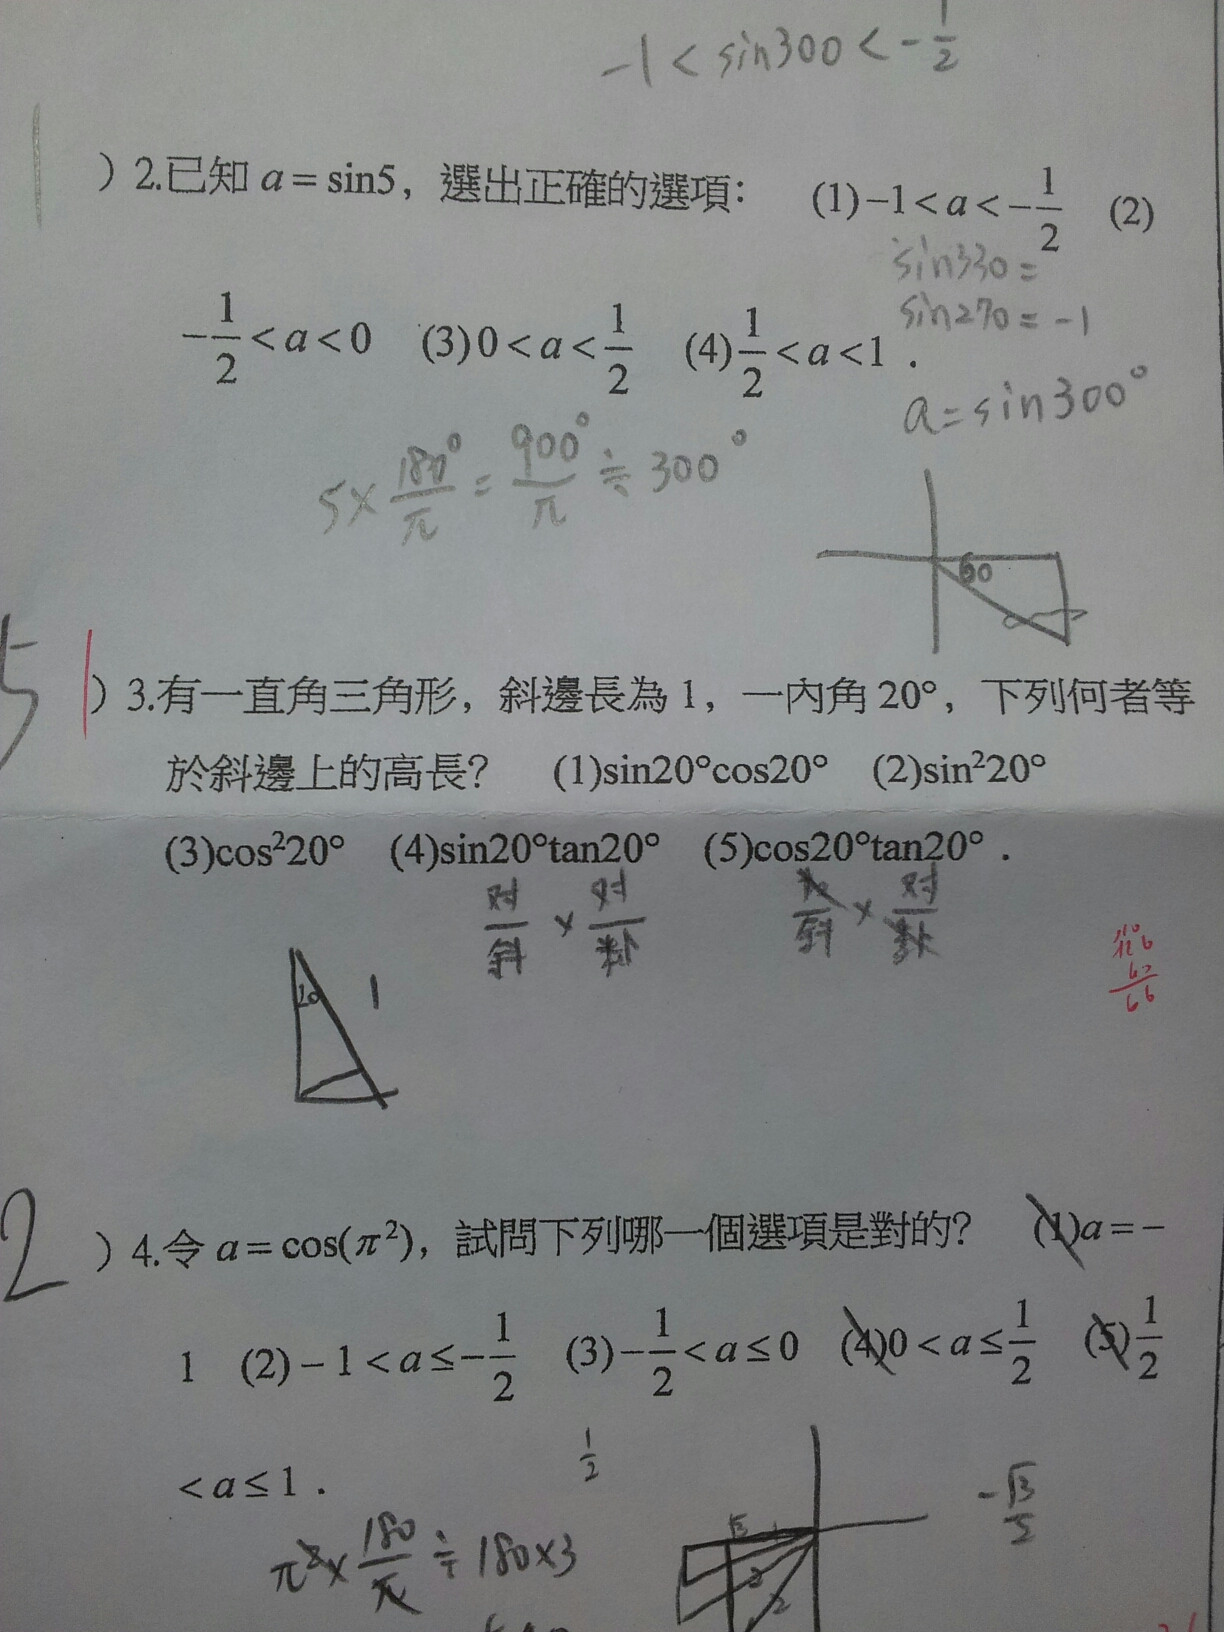 -1 < sin300 < -1/2
) 2.已知 a = sin5，選出正確的選項： (1) -1 < a < -1/2 (2)
sin330 =
sin270 = -1
-1/2 < a < 0 (3) 0 < a < 1/2 (4) 1/2 < a < 1 .
a = sin300°
5 × 180°/π = 900°/π ≒ 300°
60
5
) 3.有一直角三角形，斜邊長為 1，一內角 20°，下列何者等
於斜邊上的高長？ (1)sin20°cos20° (2)sin²20°
(3)cos²20° (4)sin20°tan20° (5)cos20°tan20° .
对/斜 × 对/
/斜 × 对/
20 1
66
2
) 4.令 a = cos(π²)，試問下列哪一個選項是對的？ (1)a = -
1 (2) -1 < a ≤ -1/2 (3) -1/2 < a ≤ 0 (4)0 < a ≤ 1/2 (5) 1/2
< a ≤ 1 .
1/2
-√3/2
π² × 180/π ≒ 180×3
2
2